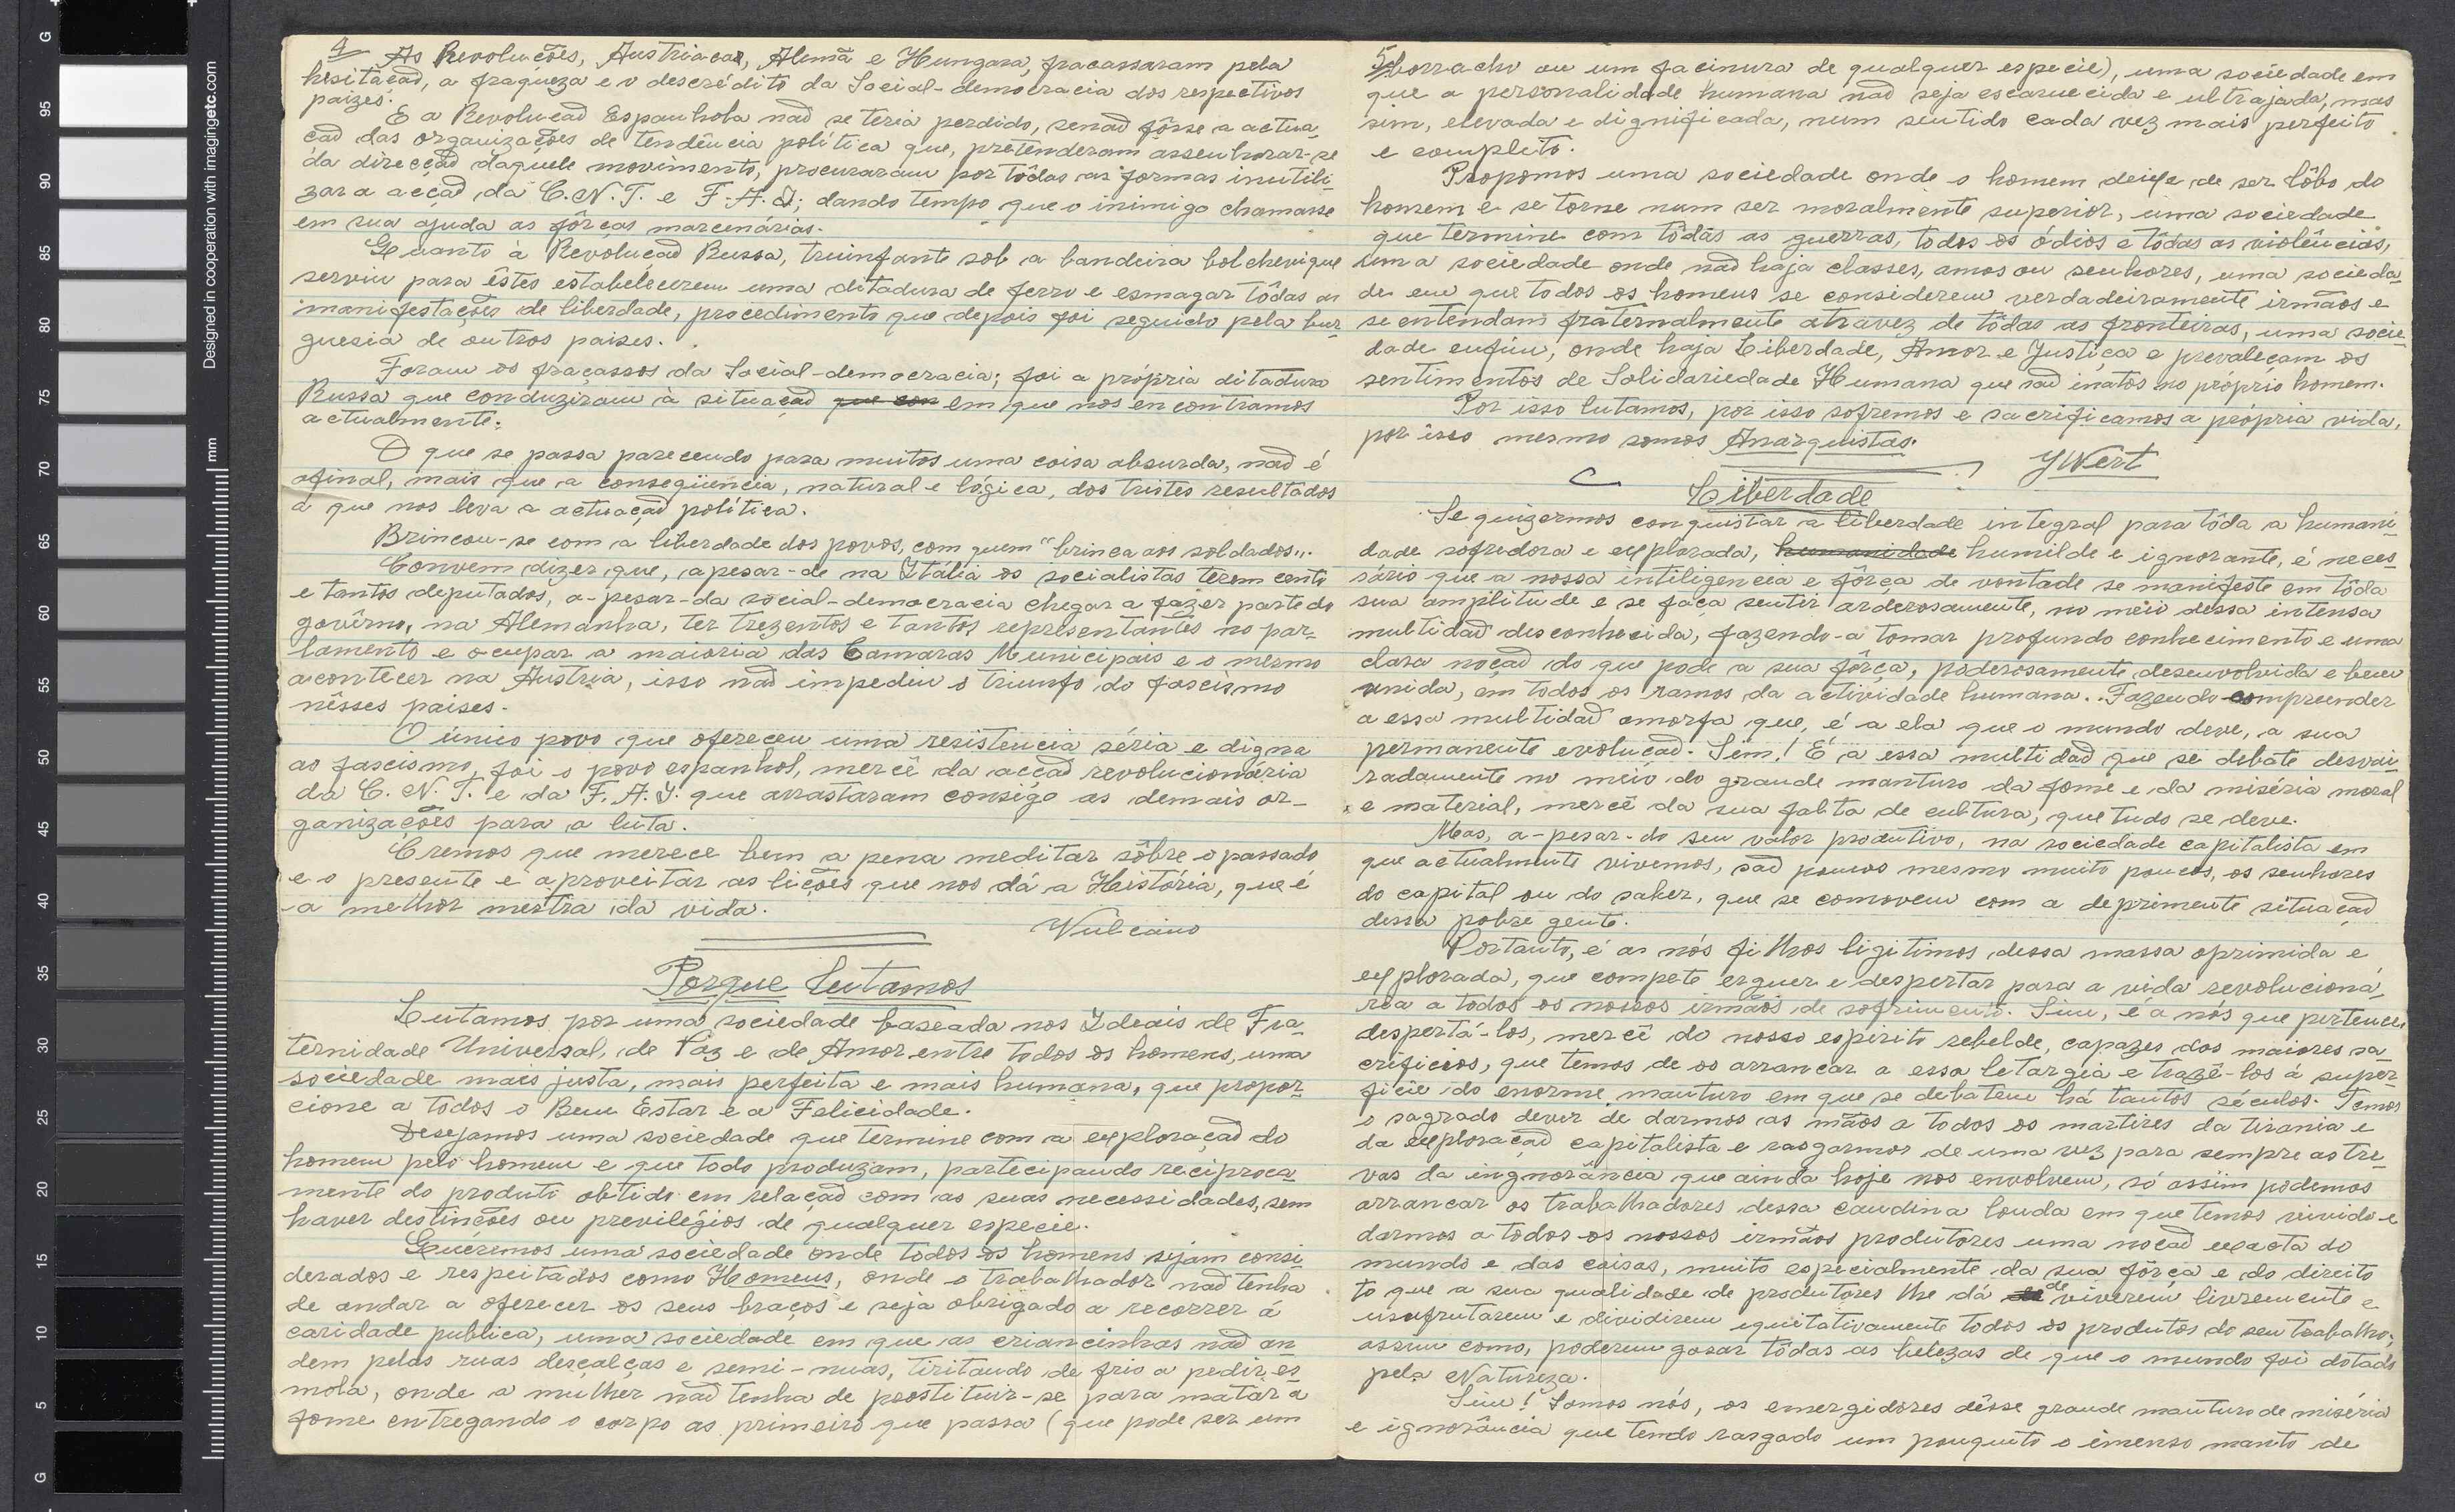 4 As Revoluções, Austriacas, Alemã e Hungara, fracassaram pela
hesitação, a fraqueza e o descrédito da Social-democracia dos respectivos
paizes.
E a Revolução Espanhola não se teria perdido, senão fôsse a actua-
ção das organizações de tendência política que, pretenderam assenhorar-se
da direcção daquele movimento, procuraram por tôdas as formas inutili-
zar a acção da C.N.T. e F.A.I; dando tempo que o inimigo chamasse
em sua ajuda as fôrças marcenárias.
Quanto à Revolução Russa, truinfante sob a bandeira bolchevique
serviu para êstes estabelecerem uma ditadura de ferro e esmagar tôdas as
manifestações de liberdade, procedimento que depois foi seguido pela bur-
guesia de outros paises.
Foram os fracassos da Social-democracia; foi a própria ditadura
Russa que conduziram à situação que con em que nos encontramos
actualmente.
O que se passa parecendo para muitos uma coisa absurda, não é
afinal, mais que a conseqüencia, natural e lógica, dos tristes resultados
a que nos leva a actuação política.
Brincou-se com a liberdade dos povos, com quem "brinca aos soldados".
Convem dizer que, apesar-de na Itália os socialistas terem cento
e tantos deputados, a-pesar-da social-democracia chegar a fazer parte do
govêrno, na Alemanha, ter trezentos e tantos representantes no par-
lamento e ocupar a maioria das Camaras Municipais e o mesmo
acontecer na Austria, isso não impediu o triunfo do fascismo
nêsses paises.
O único povo que ofereceu uma resistencia séria e digna
ao fascismo, foi o povo espanhol, mercê da acção revolucionária
da C.N.T. e da F.A.I. que arrastaram consigo as demais or-
ganizações para a luta.
Cremos que merece bem a pena meditar sôbre o passado
e o presente e aproveitar as lições que nos dá a História, que é
a melhor mestra da vida.
Vulcano
Porque lutamos
Lutamos por uma sociedade baseada nos Ideais de Fra-
ternidade Universal, de Paz e de Amor entre todos os homens, uma
sociedade mais justa, mais perfeita e mais humana, que propor-
cione a todos o Bem Estar e a Felicidade.
Desejamos uma sociedade que termine com a exploração do
homem pelo homem e que todo produzam, participando reciproca-
mente do produto obtido em relação com as suas necessidades, sem
haver destinções ou previlégios de qualquer especie.
Queremos uma sociedade onde todos os homens sejam consi-
derados e respeitados como Homens, onde o trabalhador não tenha
de andar a oferecer os seus braços e seja obrigado a recorrer á
caridade publica, uma sociedade em que as criancinhas não an-
dem pelas ruas descalças e semi-nuas, tiritando de frio a pedir es-
mola, onde a mulher não tenha de prostituir-se para matar a
fome entregando o corpo as primeiro que passa (que pode ser um
5 borracho ou um facinura de qualquer especie), uma sociedade em
que a personalidade humana não seja escarnecida e ultrajada, mas
sim, elevada e dignificada, num sentido cada vez mais perfeito
e completo.
Propomos uma sociedade onde o homem deixe de ser lôbo do
homem e se torne num ser moralmente superior, uma sociedade
que termine com tôdas as guerras, todos os ódios e tôdas as violências,
uma sociedade onde não haja classes, amos ou senhores, uma socieda-
de em que todos os homens se considerem verdadeiramente irmãos e
se entendam fraternalmente atravez de tôdas as fronteiras, uma socie-
dade enfim, onde haja Liberdade, Amor e Justiça e prevaleçam os
sentimentos de Solidariedade Humana que são inatos no próprio homem.
Por isso lutamos, por isso sofremos e sacrificamos a própria vida,
por isso mesmo somos Anarquistas.
YWert
Liberdade
Se quizermos conquistar a liberdade integral para tôda a humani-
dade sofredora e explorada, humanidade humilde e ignorante, é neces-
sário que a nossa intiligencia e fôrça de vontade se manifeste em tôda
sua amplitude e se faça sentir arderosamente, no meio dessa intensa
multidão desconhecida, fazendo-a tomar profundo conhecimento e uma
clara noção do que pode a sua fôrça, poderosamente desenvolvida e bem
unida, em todos os ramos da actividade humana. Fazendo compreender
a essa multidão amorfa que, é a ela que o mundo deve, a sua
permanente evolução. Sim! É a essa multidão que se debate desvai-
radamente no meio do grande manturo da fome e da miséria moral
e material, mercê da sua falta de cultura, que tudo se deve.
Mas, a-pesar-do seu valor produtivo, na sociedade capitalista em
que actualmente vivemos, são poucos mesmo muito poucos, os senhores
do capital ou do saber, que se comovem com a deprimente situação
dessa pobre gente.
Portanto, é as nós filhos ligitimos dessa massa oprimida e
explorada, que compete erguer e despertar para a vida revolucioná-
ria a todos os nossos irmãos de sofrimento. Sim, é a nós que pertence
despertá-los, mercê do nosso espirito rebelde, capazes dos maiores sa-
crificios, que temos de os arrancar a essa letargia e trazê-los á super-
ficie do enorme manturo em que se debatem há tantos séculos. Temos
o sagrado dever de darmos as mãos a todos os martires da tirania e
da exploração capitalista e rasgarmos de uma vez para sempre as tre-
vas da ingnorância que ainda hoje nos envolvem, só assim podemos
arrancar os trabalhadores dessa caudina londa em que temos vivido e
darmos a todos os nossos irmãos produtores uma noção exacta do
mundo e das coisas, muito especialmente da sua fôrça e do direito
to que a sua qualidade de produtores lhe dá de viverem livremente e
usufrutarem e dividirem equitativamente todos os produtos do seu trabalho,
assim como, poderem gosar tôdas as belezas de que o mundo foi dotado
pela Natureza.
Sim! Somos nós, os emergidores dêsse grande manturo de miséria
e ignorância que tendo rasgado um pouquito o imenso manto de
G
95
90
85
80
75
70
65
60
55
50
45
40
35
30
25
20
15
10
5
G
mm
Designed in cooperation with imagingetc.com